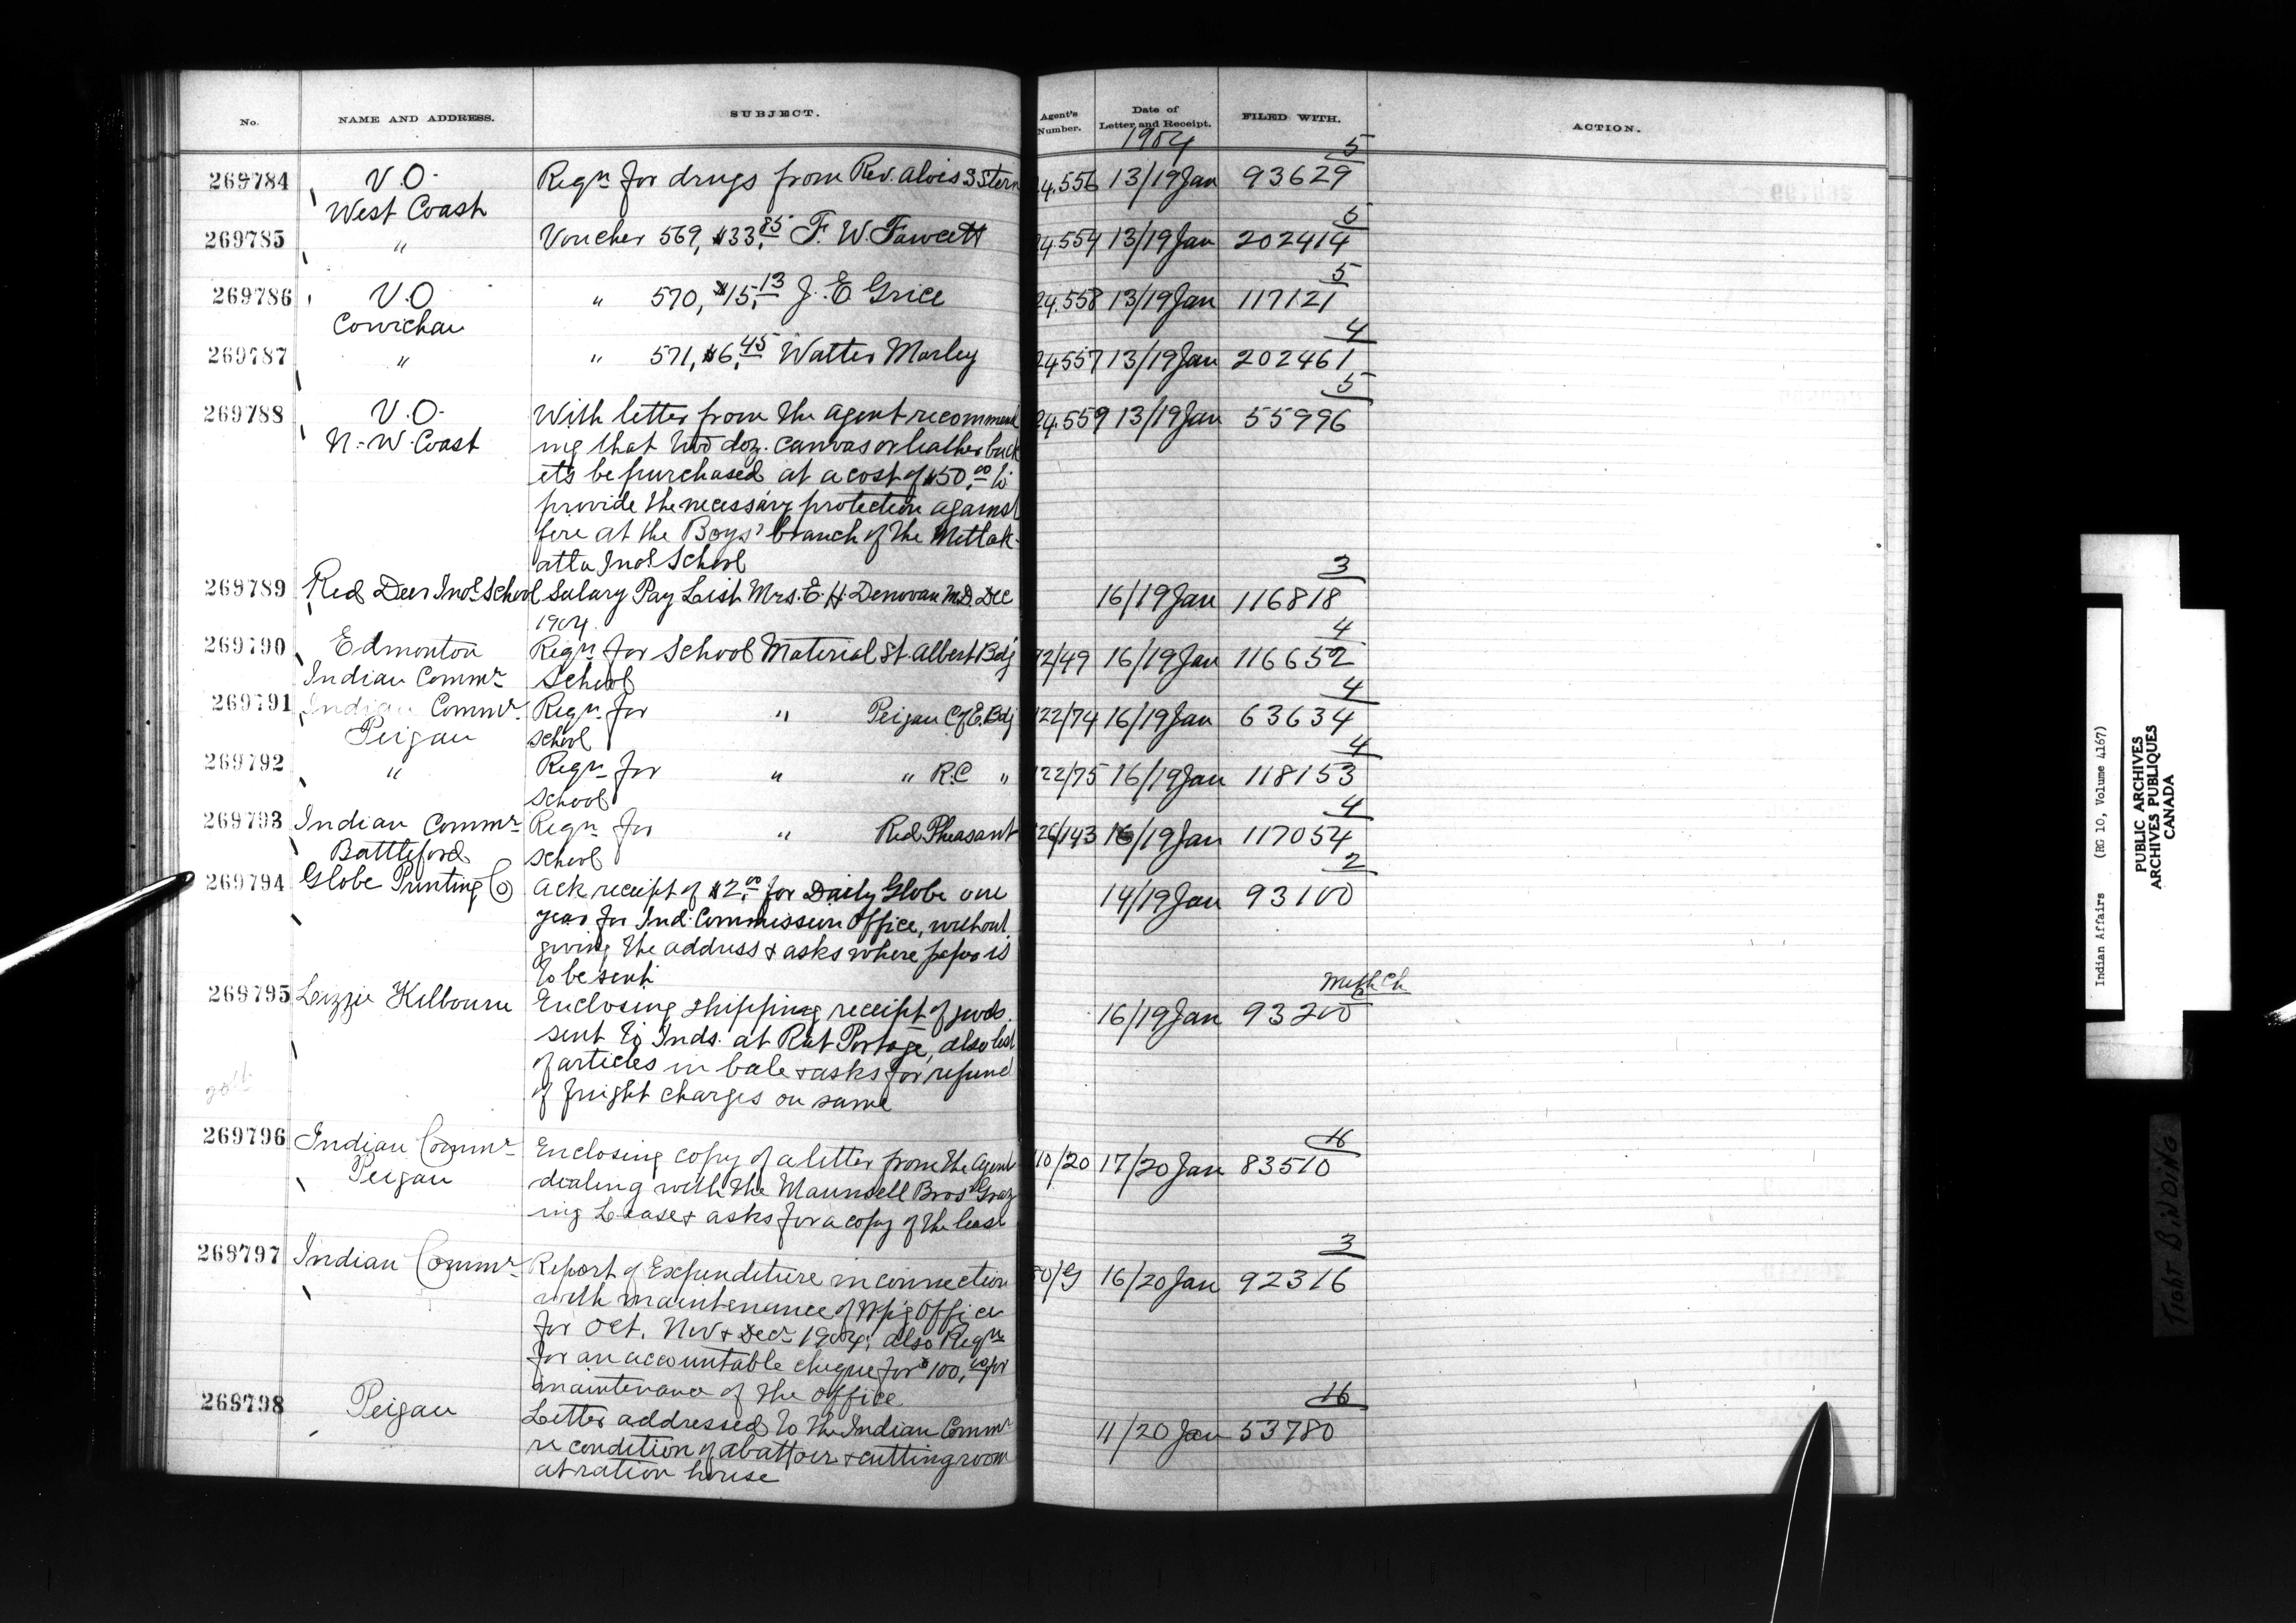 No. NAME AND ADDRESS. SUBJECT. Agent's Number. Date of Letter and Receipt. FILED WITH. ACTION.
1904
5
269784 V.O. Reqn for drugs from Rev. Alois S Stern 24.556 13/19 Jan 93629
West Coast
5
269785 " Voucher 569, $33.85 F. W. Fawcett 24.554 13/19 Jan 202414
5
269786 V.O. " 570, $15.13 J. E. Grice 24.558 13/19 Jan 117121
Cowichan
4
269787 " " 571, $6.45 Walter Morley 24557 13/19 Jan 202461
5
269788 V.O. With letter from the agent recommend 24.559 13/19 Jan 55996
N.-W. Coast ing that two doz. canvas or leather buck
ets be purchased at a cost of $50.00 to
provide the necessary protection against
fire at the Boys' branch of the Metlak-
atla Indl School
3
269789 Red Deer Indl School Salary Pay List Mrs. E. H. Donovan M.D. Dec 16/19 Jan 116818
1904.
4
269790 Edmonton Reqn for School Material St. Albert Bdg 92/49 16/19 Jan 116652
Indian Commr School
4
269791 Indian Commr Reqn for " Peigan C of E. Bdg 122/74 16/19 Jan 63634
Peigan School
4
269792 " Reqn for " " R.C " 122/75 16/19 Jan 118153
School
4
269793 Indian Commr Reqn for " Red Pheasant 126/143 16/19 Jan 117054
Battleford School
2
269794 Globe Printing Co Ack receipt of $2.00 for Daily Globe one 14/19 Jan 93100
year for Ind. Commission Office, without
giving the address & asks where paper is
to be sent.
Meth Ch
269795 Lizzie Kilbourn Enclosing shipping receipt of goods 16/19 Jan 93200
sent to Inds. at Rat Portage, also list
of articles in bale & asks for refund
of freight charges on same
16
269796 Indian Commr Enclosing copy of a letter from the Agent 110/20 17/20 Jan 83510
Peigan dealing with the Maunsell Bros' Graz
ing Lease & asks for a copy of the lease
3
269797 Indian Commr Report of Expenditure in connection 50/G 16/20 Jan 92316
with maintenance of Wpg Office
for Oct. Nov & Decr 1904, also Reqn
for an accountable cheque for $100.00 for
maintenance of the office
16
269798 Peigan Letter addressed to the Indian Commr 11/20 Jan 53780
re condition of abattoir & cutting room
at ration house
Indian Affairs (RG 10, Volume 4167)
PUBLIC ARCHIVES
ARCHIVES PUBLIQUES
CANADA
TIGHT BINDING